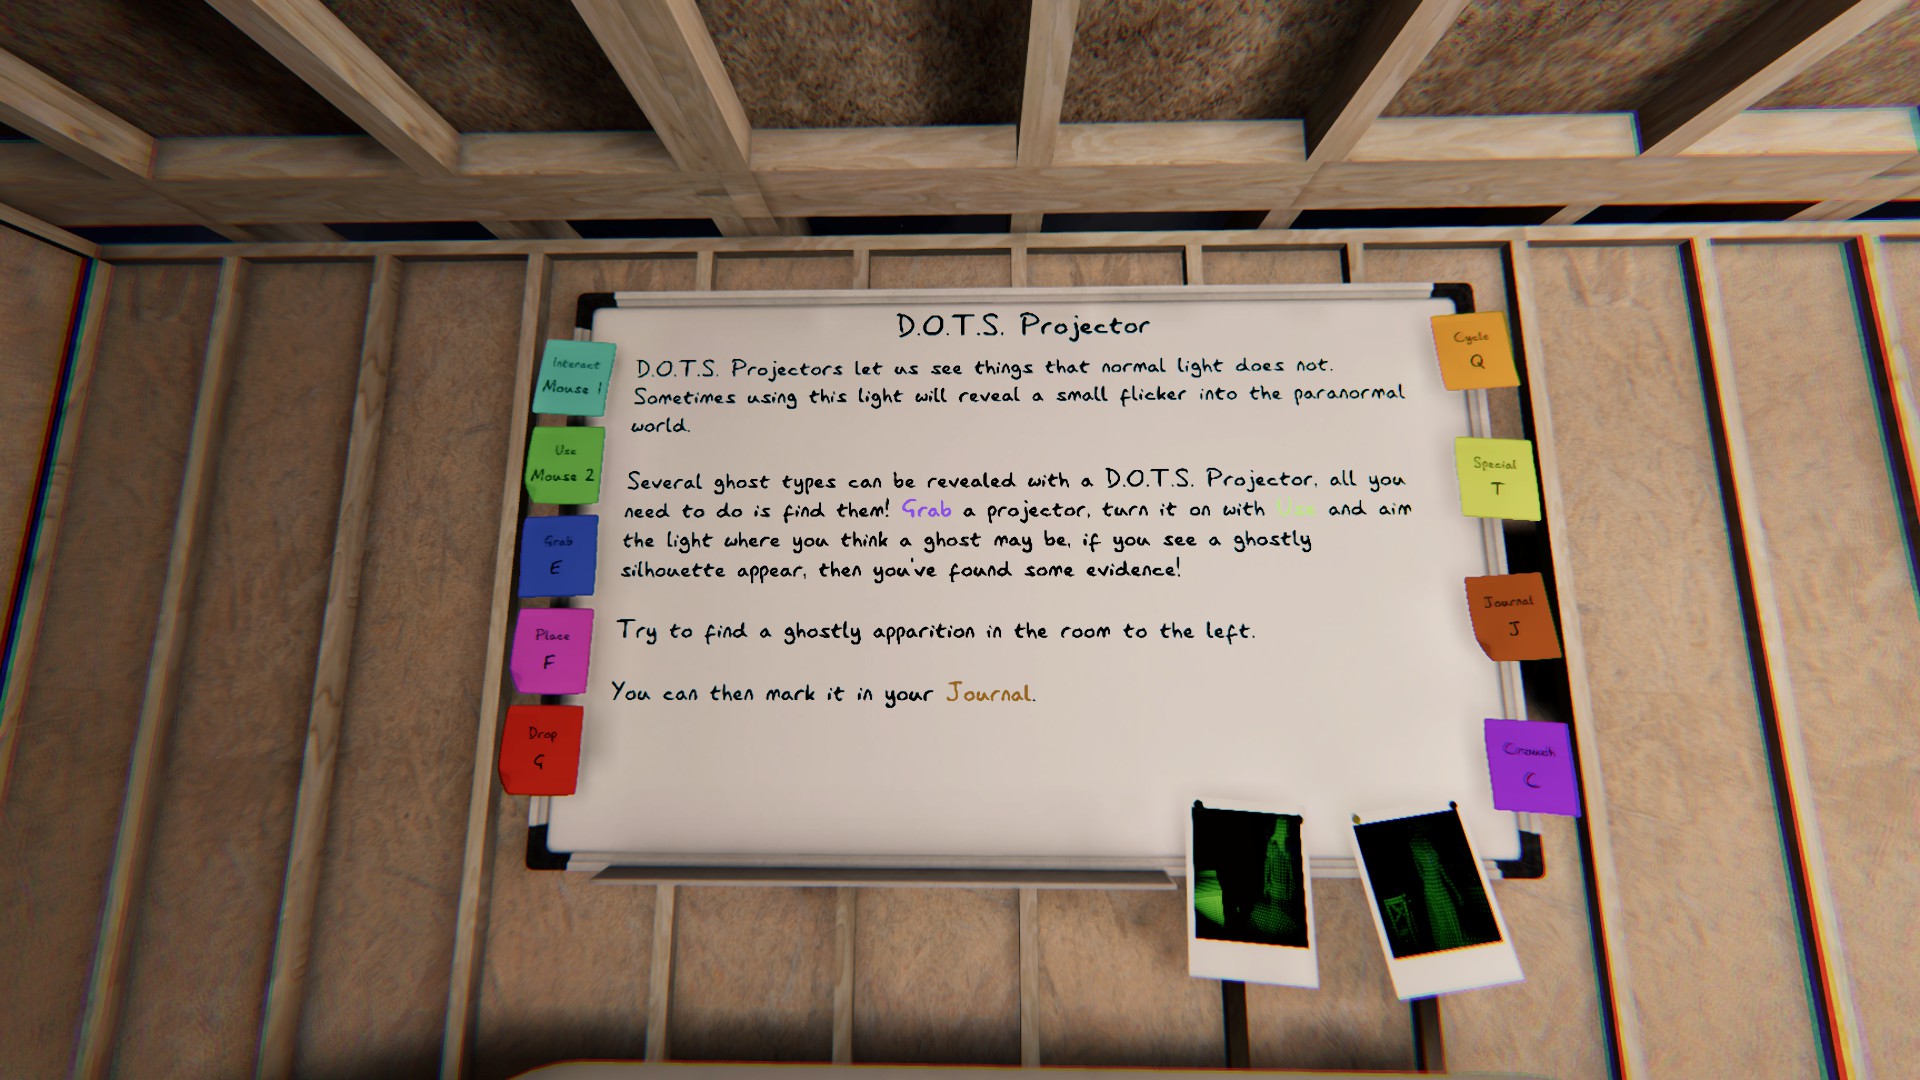 D.O.T.S. Projector
D.O.T.S. Projectors let us see things that normal light does not.
Sometimes using this light will reveal a small flicker into the paranormal
world.
Several ghost types can be revealed with a D.O.T.S. Projector, all you
need to do is find them! Grab a projector, turn it on with Use and aim
the light where you think a ghost may be, if you see a ghostly
silhouette appear, then you've found some evidence!
Try to find a ghostly apparition in the room to the left.
You can then mark it in your Journal.
Interact
Mouse 1
Use
Mouse 2
Grab
E
Place
F
Drop
G
Cycle
Q
Special
T
Journal
J
Crouch
C